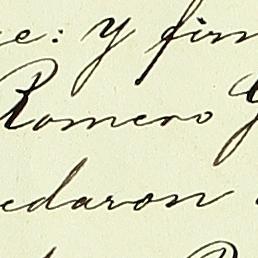 e: y fir
Romero G
edaron